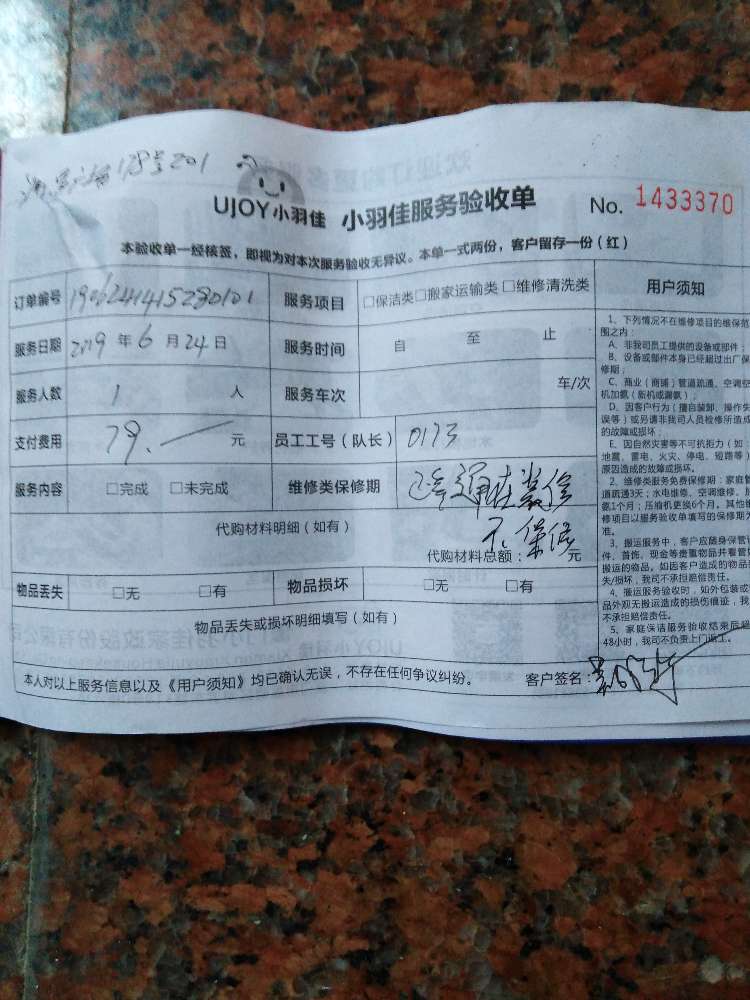 128号201
UJOY小羽佳 小羽佳服务验收单 No. 1433370
本验收单一经核签，即视为对本次服务验收无异议。本单一式两份，客户留存一份（红）
订单编号 1906241415280101 服务项目 □保洁类□搬家运输类 □维修清洗类
服务日期 2019 年 6 月 24 日 服务时间 自 至 止
服务人数 1 人 服务车次 车/次
支付费用 79. 元 员工工号（队长） 0173
服务内容 □完成 □未完成 维修类保修期
代购材料明细（如有） 不保修
代购材料总额： 元
物品丢失 □无 □有 物品损坏 □无 □有
物品丢失或损坏明细填写（如有）
本人对以上服务信息以及《用户须知》均已确认无误，不存在任何争议纠纷。 客户签名：
用户须知
1、下列情况不在维修项目的维保范
围之内：
A、非我司员工提供的设备或部件；
B、设备或部件本身已经超过出厂保
修期；
C、商业（商铺）管道疏通、空调空
机加氨（新机或漏氨）；
D、因客户行为（擅自装卸、操作失
误等）或另请非我司人员检修所造成
的故障或损坏；
E、因自然灾害等不可抗拒力（如
地震、雷电、火灾、停电、短路等）
原因造成的故障或损坏。
2、维修类服务免费保修期：家庭管
道疏通3天；水电维修、空调维修、
氨1个月；压缩机更换6个月。其他维
修项目以服务验收单填写的保修期为
准。
3、搬运服务中，客户应随身保管证
件、首饰、现金等贵重物品并看管
搬运的物品。如因客户造成的物品
失/损坏，我司不承担赔偿责任。
4、搬运服务验收时，如外包装或
品外观无搬运造成的损伤痕迹，我
不承担赔偿责任。
5、家庭保洁服务验收结束后超
48小时，我司不负责上门返工。